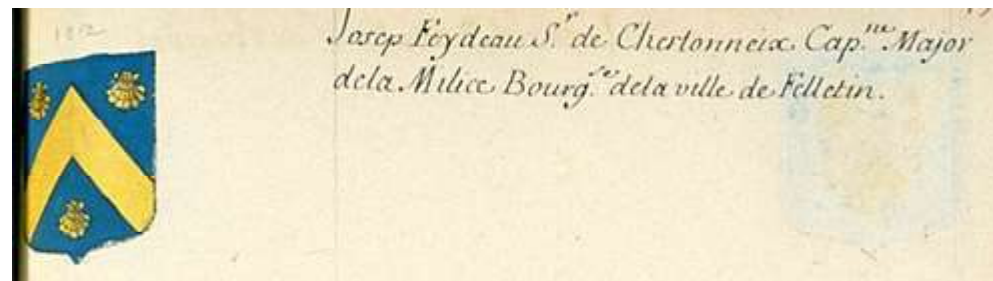 Josep Feydeau S.r de Chertonneix. Cap.ne Major
dela Milice Bourg.se dela ville de Felletin.